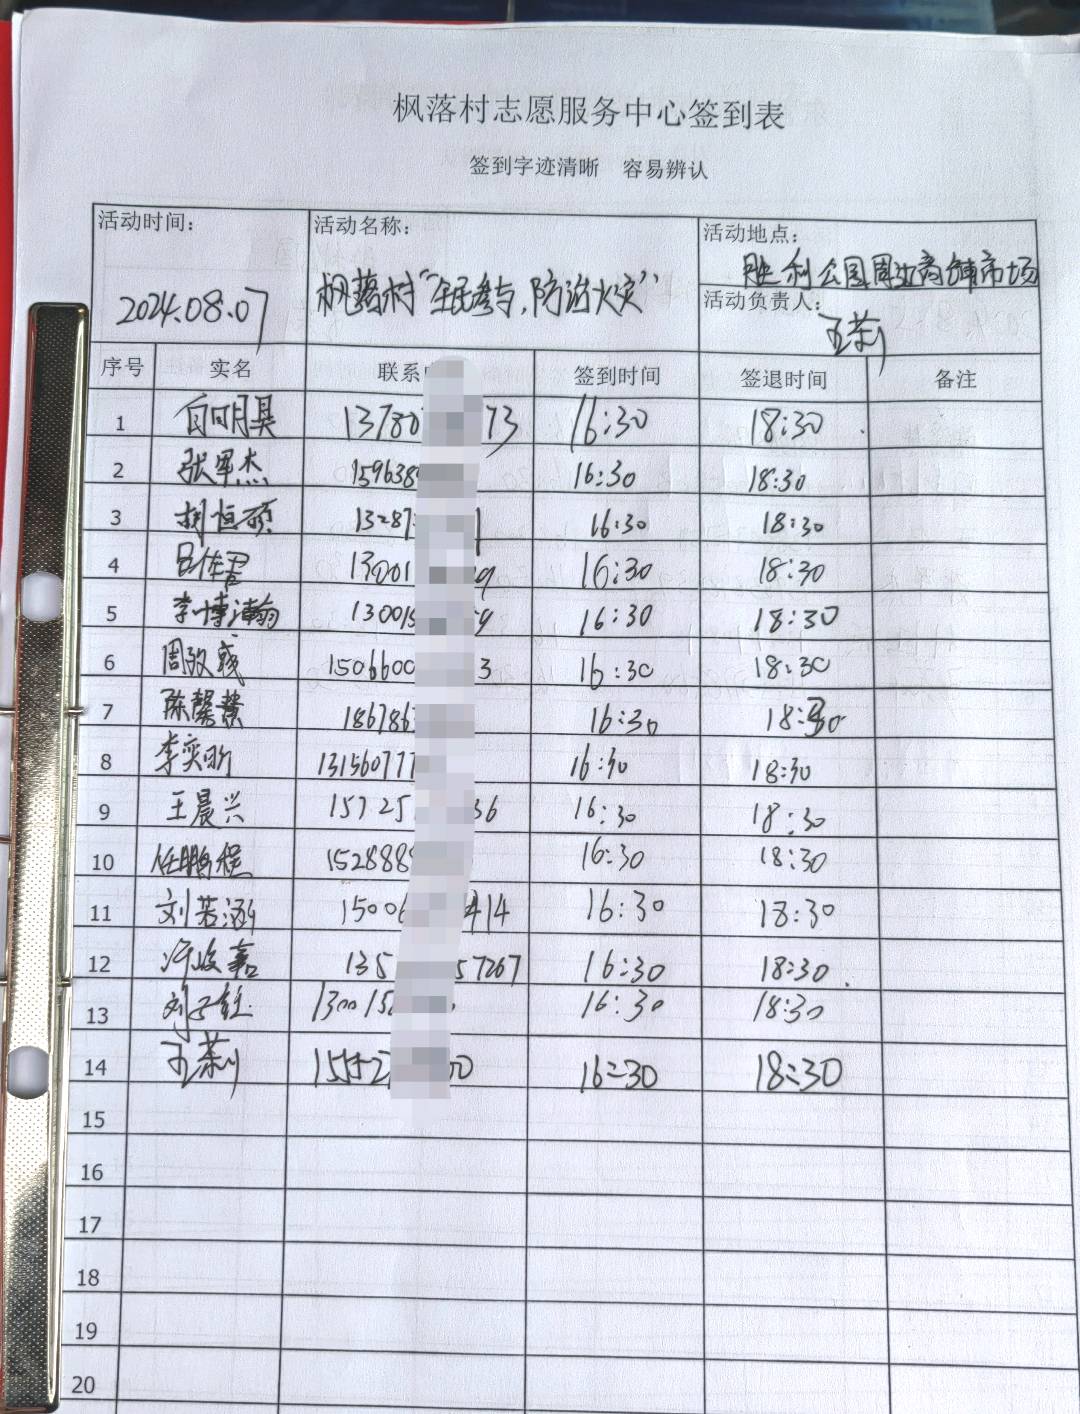 枫落村志愿服务中心签到表
签到字迹清晰 容易辨认
活动时间： 2024.08.07
活动名称： 枫落村“全民参与，防治火灾”
活动地点： 胜利公园周边商铺市场
活动负责人： 王莉
序号 实名 联系 签到时间 签退时间 备注
1 白明昊 13780 73 16:30 18:30
2 张军杰 159638 16:30 18:30
3 恒硕 13287 16:30 18:30
4 吕佳 13001 9 16:30 18:30
5 李博瀚 130015 9 16:30 18:30
6 周致彧 1506600 3 16:30 18:30
7 陈馨 186786 16:30 18:30
8 李奕昕 131560777 16:30 18:30
9 王晨兴 15725 36 16:30 18:30
10 任鹏程 1528888 16:30 18:30
11 刘若涵 15006 414 16:30 18:30
12 许峻嘉 135 57267 16:30 18:30
13 刘子钰 130015 16:30 18:30
14 王莉 15552 00 16:30 18:30
15
16
17
18
19
20